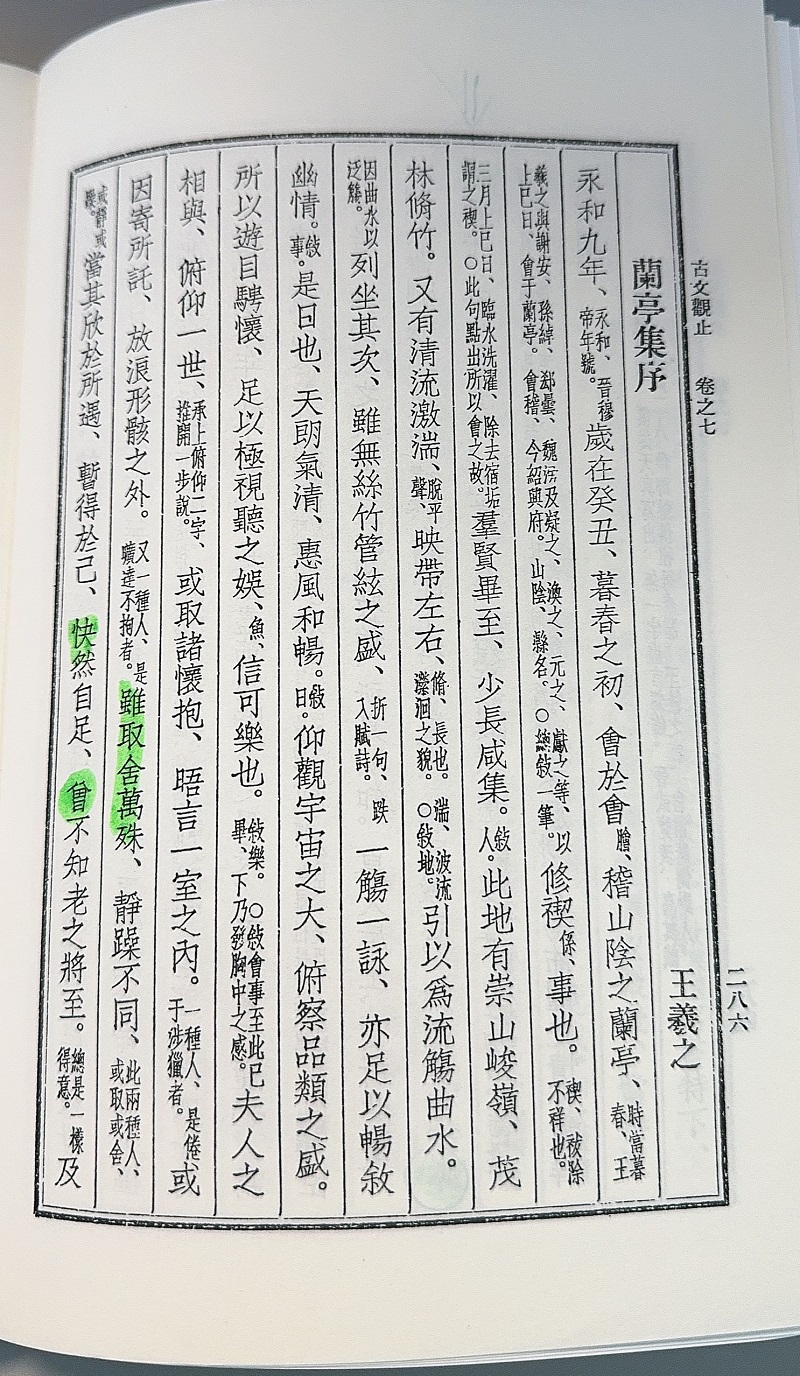 古文觀止　卷之七　二八六
蘭亭集序　王羲之
永和九年、永和、晉穆帝年號。歲在癸丑、暮春之初、會於會膾、稽山陰之蘭亭、時當暮春、王
羲之與謝安、孫綽、郄曇、魏滂及凝之、渙之、元之、獻之等、以上巳日、會于蘭亭。會稽、今紹興府。山陰、縣名。○總敘一筆。修禊係、事也。禊、祓除不祥也。
三月上巳日、臨水洗濯、除去宿垢、謂之禊。○此句點出所以會之故。羣賢畢至、少長咸集。敘人。此地有崇山峻嶺、茂
林脩竹。又有清流激湍、脫平聲、映帶左右、脩、長也。湍、波流瀠洄之貌。○敘地。引以爲流觴曲水。
因曲水以泛觴。列坐其次、雖無絲竹管絃之盛、折一句、跌入賦詩。一觴一詠、亦足以暢敘
幽情。敘事。是日也、天朗氣清、惠風和暢。敘日。仰觀宇宙之大、俯察品類之盛。
所以遊目騁懷、足以極視聽之娛、魚、信可樂也。敘樂。○敘會事至此已畢、下乃發胸中之感。夫人之
相與、俯仰一世、承上俯仰二字、推開一步說。或取諸懷抱、晤言一室之內。一種人、是倦于涉獵者。或
因寄所託、放浪形骸之外。又一種人、是曠達不拘者。雖取舍萬殊、靜躁不同、此兩種人、或取或舍、
或靜或躁。當其欣於所遇、暫得於己、快然自足、曾不知老之將至。總是一樣得意。及